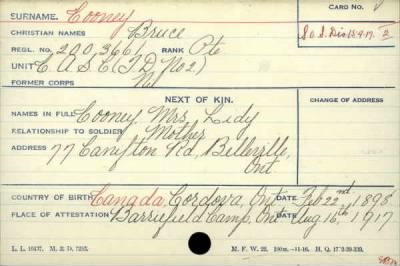 CARD NO.
SURNAME. Cooney
CHRISTIAN NAMES Bruce
S.O.S. Dis 15-9-17. 2
REGL. NO. 2003661 RANK Pte
UNIT C.A.S.C. (T.D. No 2)
FORMER CORPS Nil
NEXT OF KIN.
CHANGE OF ADDRESS
NAMES IN FULL Cooney, Mrs. Lidy
RELATIONSHIP TO SOLDIER Mother
ADDRESS 77 Canifton Rd, Belleville,
Ont
COUNTRY OF BIRTH Canada, Cordova, Ont DATE Feb 22nd 1898
PLACE OF ATTESTATION Barriefield Camp, Ont DATE Aug 16th 1917
M. F. W. 22.